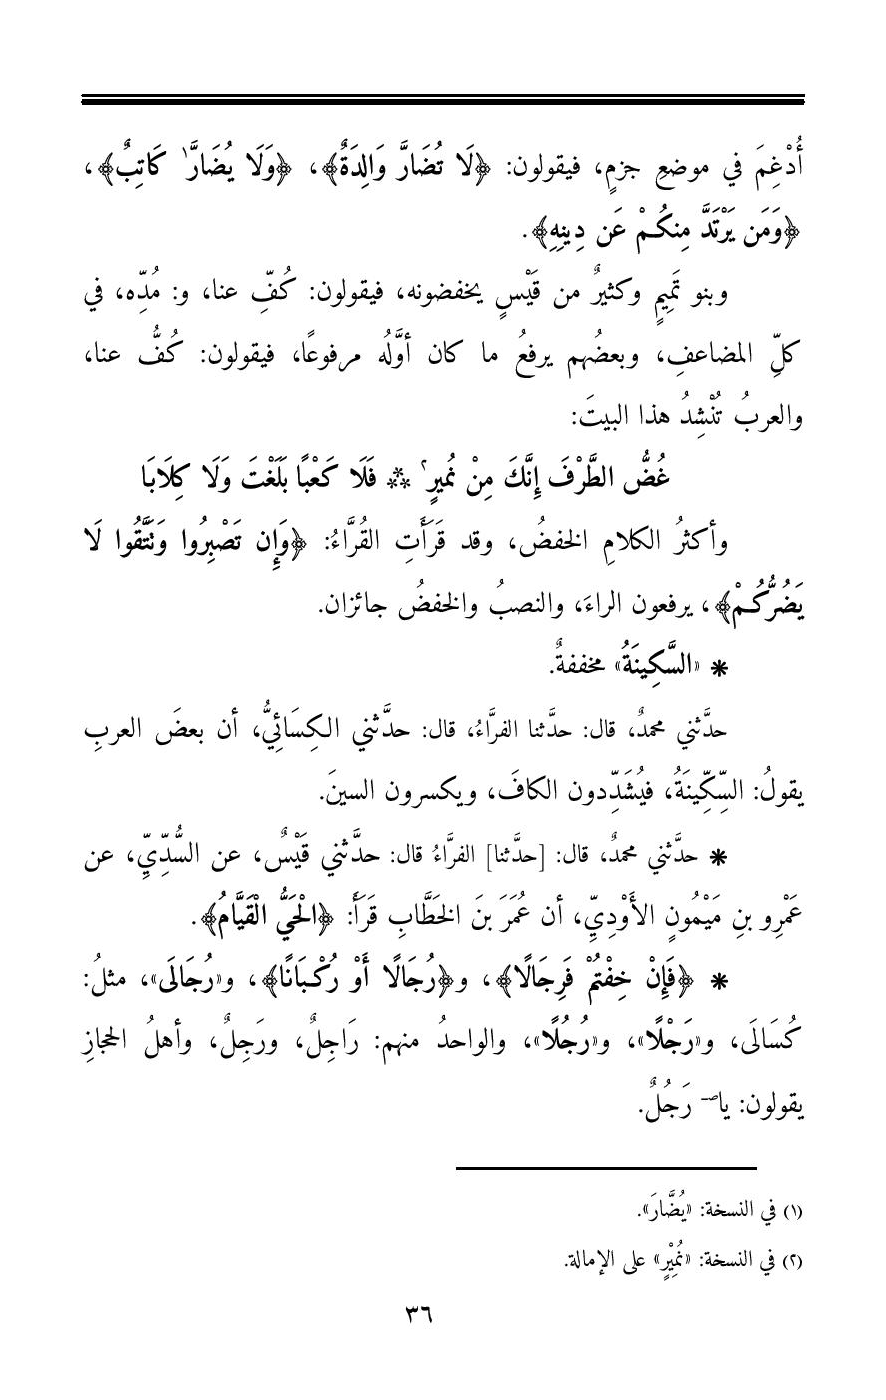 أُدْغِمَ في موضعِ جزمٍ، فيقولون: ﴿لَا تُضَارَّ وَالِدَةٌ﴾، ﴿وَلَا يُضَارَّ⁽¹⁾ كَاتِبٌ﴾،
﴿وَمَن يَرْتَدَّ مِنكُمْ عَن دِينِهِ﴾.
وبنو تَمِيمٍ وكثيرٌ من قَيْسٍ يخفضونه، فيقولون: كُفِّ عنا، و: مُدِّه، في
كلِّ المضاعفِ، وبعضُهم يرفعُ ما كان أوَّلُه مرفوعًا، فيقولون: كُفُّ عنا،
والعربُ تُنْشِدُ هذا البيتَ:
غُضُّ الطَّرْفَ إِنَّكَ مِنْ نُمِيرٍ⁽²⁾ ⁂ فَلَا كَعْبًا بَلَغْتَ وَلَا كِلَابَا
وأكثرُ الكلامِ الخفضُ، وقد قَرَأَتِ القُرَّاءُ: ﴿وَإِن تَصْبِرُوا وَتَتَّقُوا لَا
يَضُرُّكُمْ﴾، يرفعون الراءَ، والنصبُ والخفضُ جائزان.
* «السَّكِينَةُ» مخففةٌ.
حدَّثني محمدٌ، قال: حدَّثنا الفرَّاءُ، قال: حدَّثني الكِسَائِيُّ، أن بعضَ العربِ
يقولُ: السِّكِّينَةُ، فيُشَدِّدون الكافَ، ويكسرون السينَ.
* حدَّثني محمدٌ، قال: [حدَّثنا] الفرَّاءُ قال: حدَّثني قَيْسٌ، عن السُّدِّيِّ، عن
عَمْرِو بنِ مَيْمُونٍ الأَوْدِيِّ، أن عُمَرَ بنَ الخَطَّابِ قَرَأَ: ﴿الْحَيُّ الْقَيَّامُ﴾.
* ﴿فَإِنْ خِفْتُمْ فَرِجَالًا﴾، و﴿رُجَالًا أَوْ رُكْبَانًا﴾، و«رُجَالَى»، مثلُ:
كُسَالَى، و«رَجْلًا»، و«رُجُلًا»، والواحدُ منهم: رَاجِلٌ، ورَجِلٌ، وأهلُ الحجازِ
يقولون: يا صـ رَجُلٌ.
(١) في النسخة: «يُضَّارَ».
(٢) في النسخة: «نُمِيْرٍ» على الإمالة.
٣٦